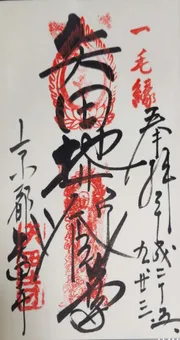 一毛縁
奉拝 平成二十五、九、廿三、
矢田地蔵尊
京都矢田寺